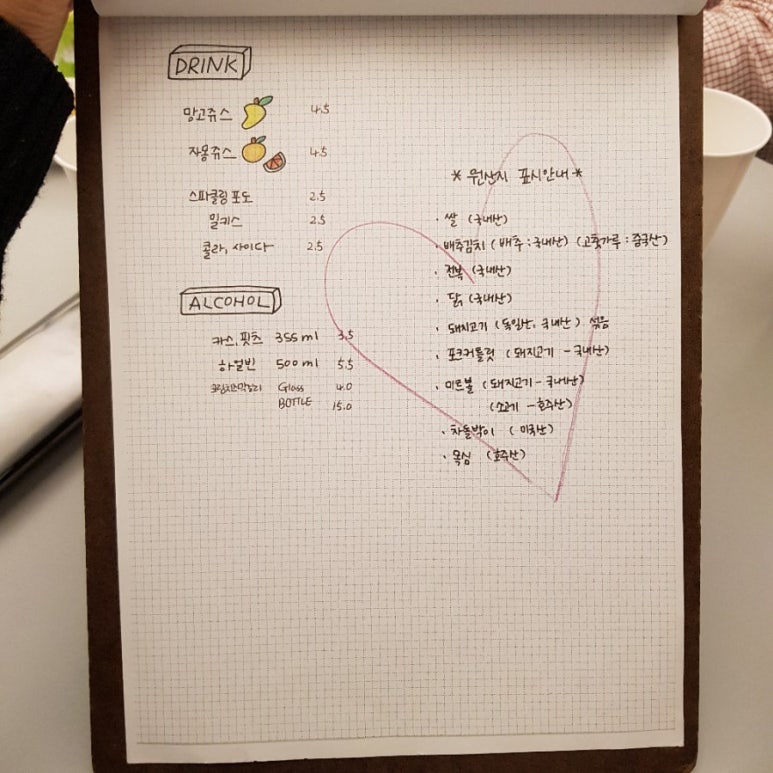 DRINK
망고쥬스 4.5
자몽쥬스 4.5
스파클링 포도 2.5
밀키스 2.5
콜라, 사이다 2.5
ALCOHOL
카스, 핏츠 355ml 3.5
하얼빈 500ml 5.5
Glass 4.0
BOTTLE 15.0
* 원산지 표시안내 *
· 쌀 (국내산)
· 배추김치 (배추 : 국내산) (고춧가루 : 중국산)
· 전복 (국내산)
· 닭 (국내산)
· 돼지고기 (독일산, 국내산) 섞음
· 포크커틀렛 (돼지고기 - 국내산)
· 미트볼 (돼지고기 - 국내산)
(소고기 - 호주산)
· 차돌박이 (미국산)
· 목심 (호주산)